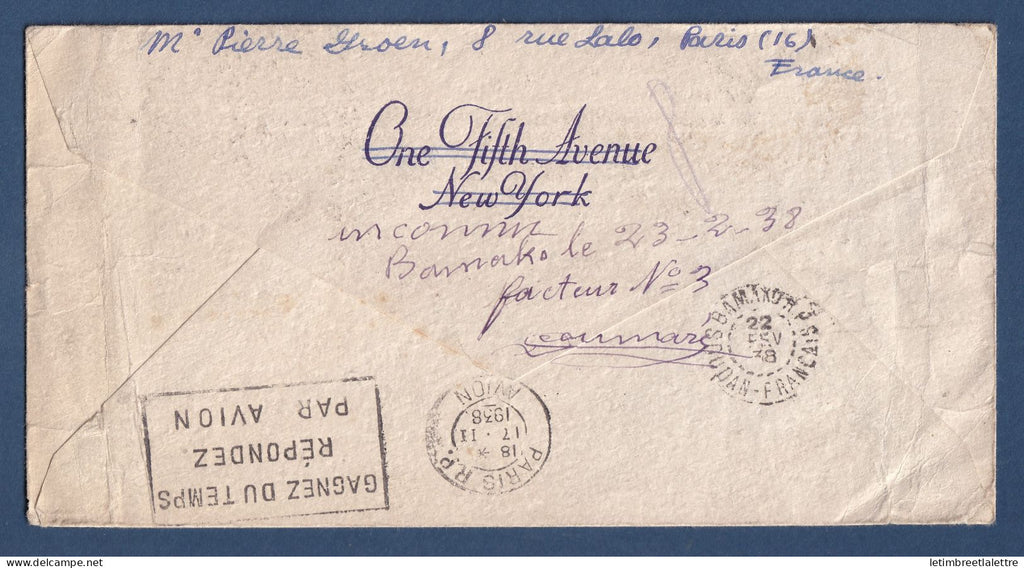 Mr Pierre Groen, 8 rue Lalo, Paris (16)
France.
One Fifth Avenue
New York
inconnu
Bamako le 23-2-38
facteur No 3
BAMAKO R.P.
22
FEV
38
SOUDAN-FRANÇAIS
PARIS R.P.
18 *
17 · II
1938
AVION
GAGNEZ DU TEMPS
RÉPONDEZ
PAR AVION
letimbreetlalettre
www.delcampe.net